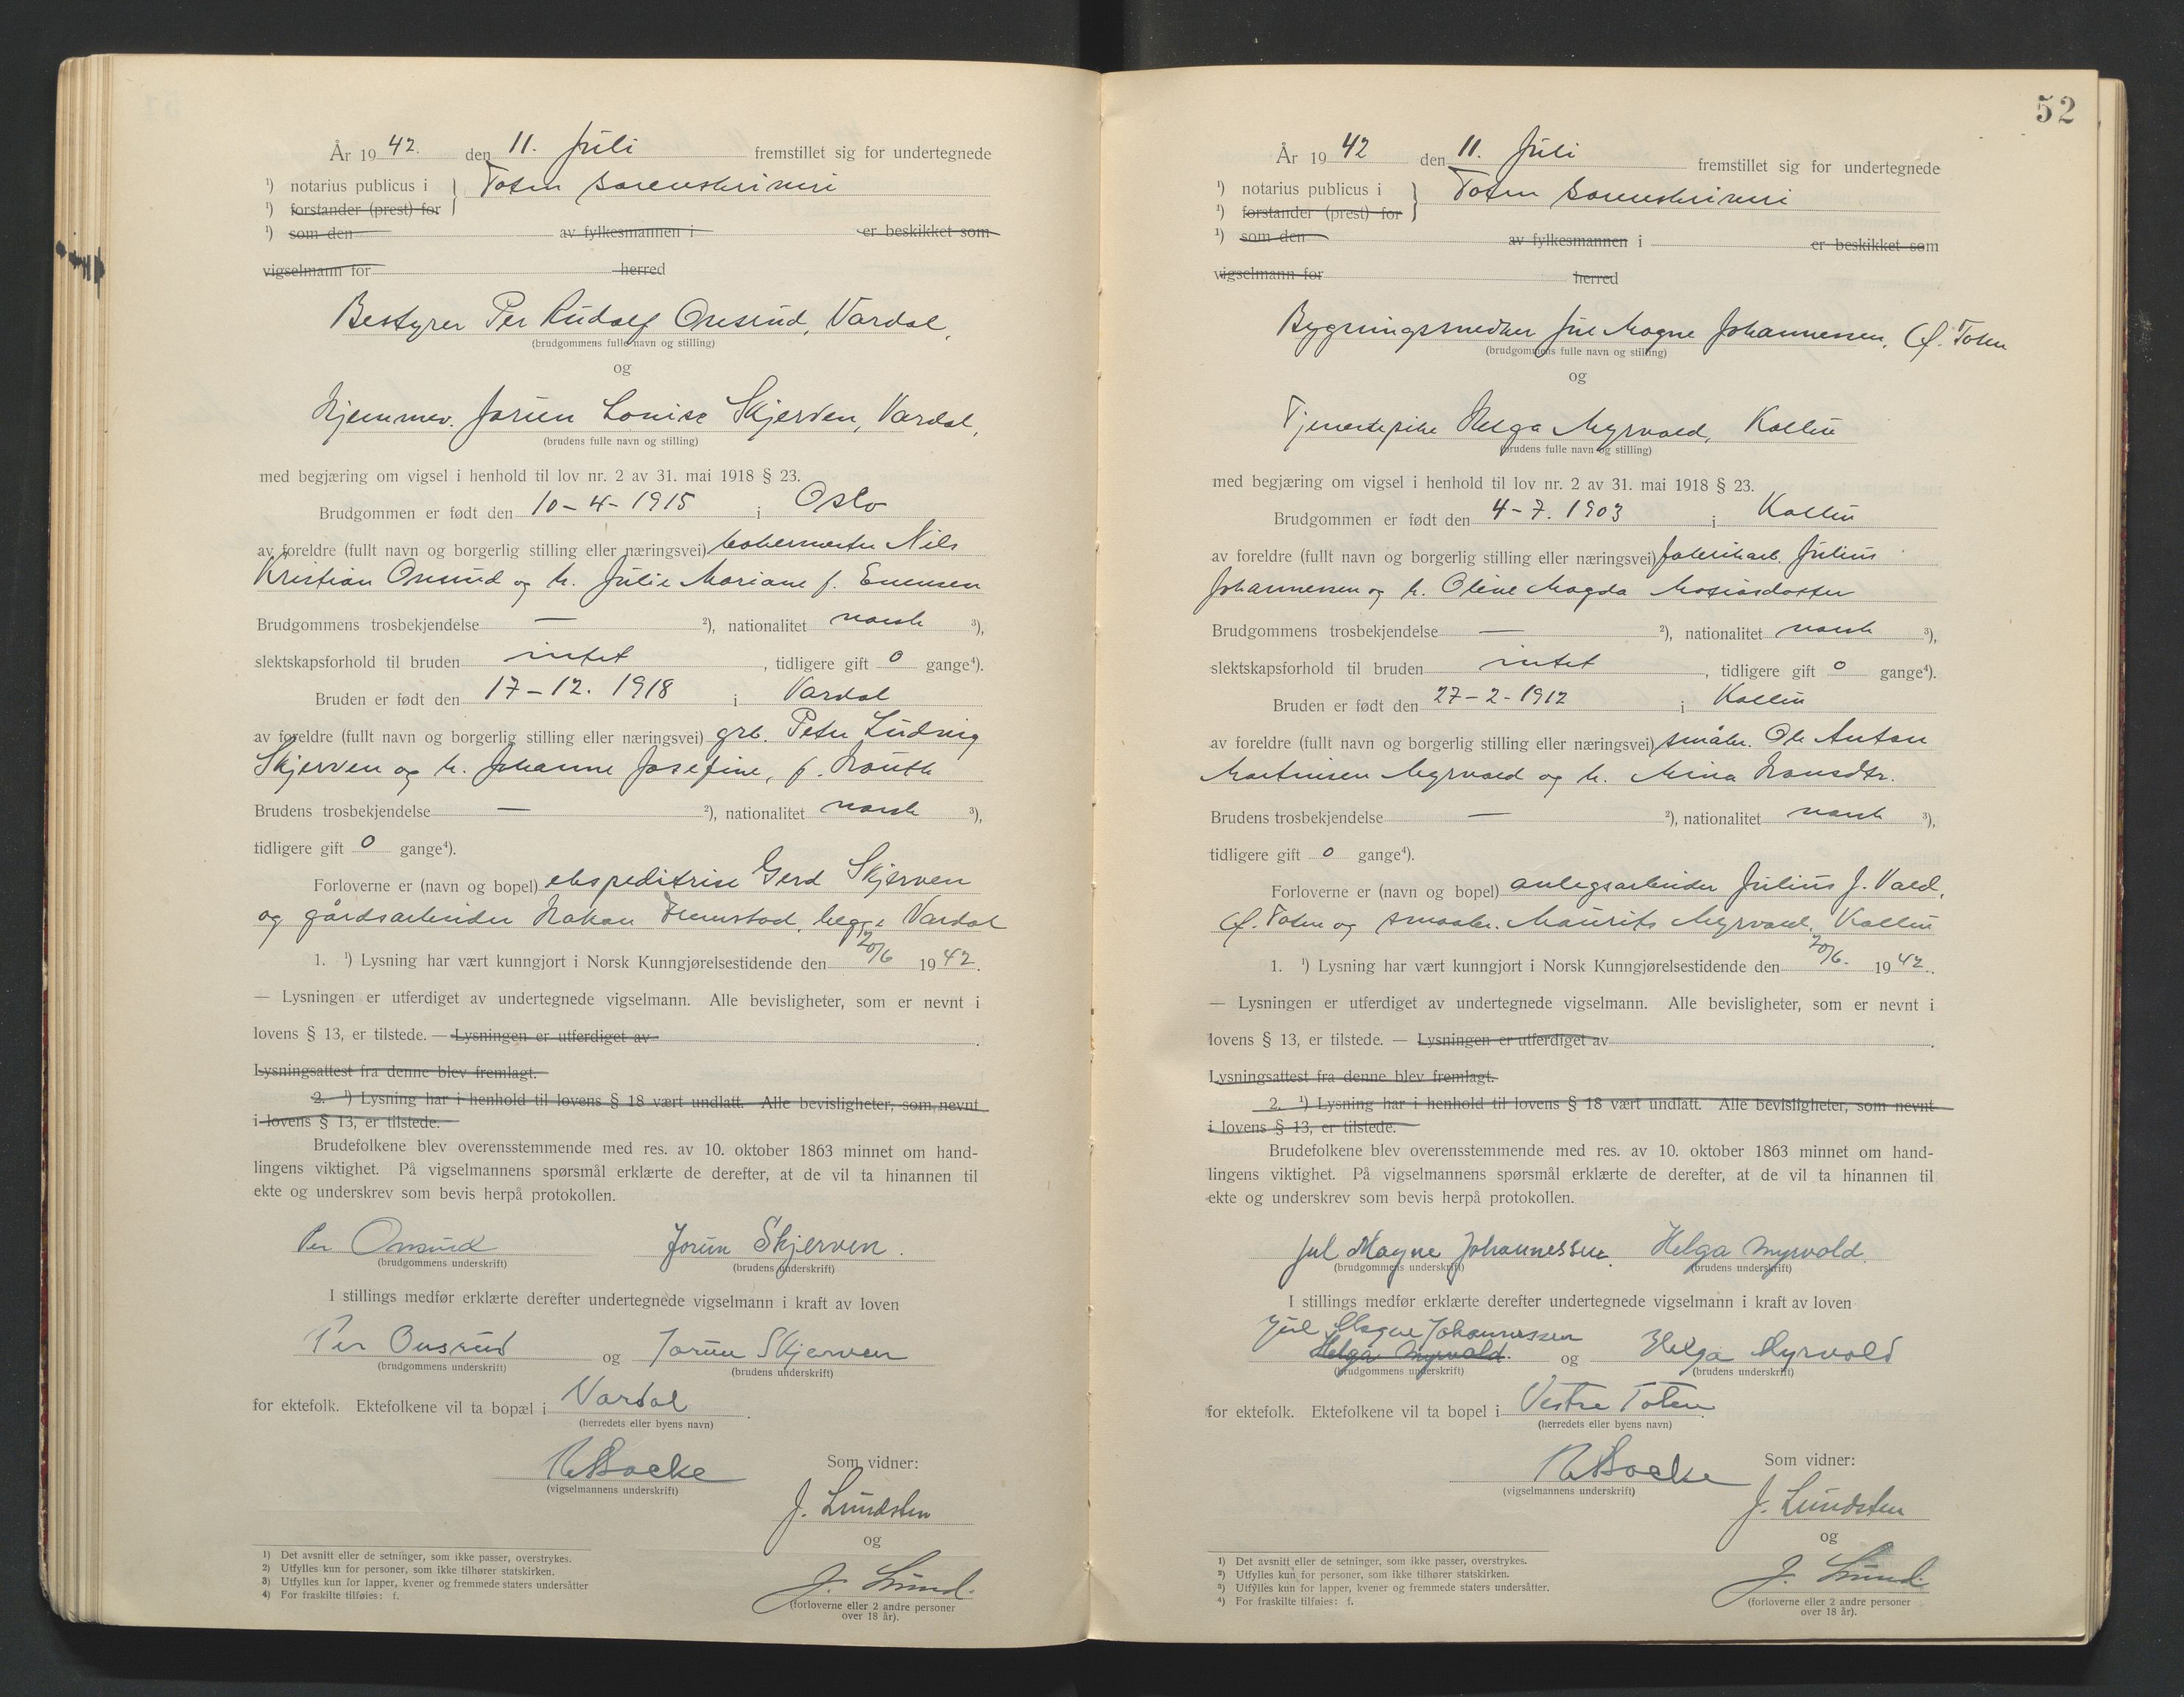 År 1942. den 11. Juli fremstillet sig for undertegnede
¹) notarius publicus i } Toten sorenskriveri
¹) forstander (prest) for
¹) som den av fylkesmannen i er beskikket som
vigselmann for herred
Bestyrer Per Rudolf Onsrud, Vardal,
(brudgommens fulle navn og stilling)
og
Hjemmev. Jorun Louise Skjerven, Vardal,
(brudens fulle navn og stilling)
med begjæring om vigsel i henhold til lov nr. 2 av 31. mai 1918 § 23.
Brudgommen er født den 10-4-1915 i Oslo
av foreldre (fullt navn og borgerlig stilling eller næringsvei) Nils
Kristian Onsrud og h. Julie Mariane f. Evensen
Brudgommens trosbekjendelse — ²), nationalitet norsk ³),
slektskapsforhold til bruden intet , tidligere gift 0 gange⁴).
Bruden er født den 17-12. 1918 i Vardal
av foreldre (fullt navn og borgerlig stilling eller næringsvei) grb. Peter Ludvig
Skjerven og h. Johanne Josefine, f.
Brudens trosbekjendelse — ²), nationalitet norsk ³),
tidligere gift 0 gange⁴).
Forloverne er (navn og bopel) ekspeditrise Gerd Skjerven
og gårdsarbeider Håkon begge Vardal
1. ¹) Lysning har vært kunngjort i Norsk Kunngjørelsestidende den 20/6 1942.
— Lysningen er utferdiget av undertegnede vigselmann. Alle bevisligheter, som er nevnt i
lovens § 13, er tilstede. — Lysningen er utferdiget av
Lysningsattest fra denne blev fremlagt.
2. ¹) Lysning har i henhold til lovens § 18 vært undlatt. Alle bevisligheter, som nevnt
i lovens § 13, er tilstede.
Brudefolkene blev overensstemmende med res. av 10. oktober 1863 minnet om hand-
lingens viktighet. På vigselmannens spørsmål erklærte de derefter, at de vil ta hinannen til
ekte og underskrev som bevis herpå protokollen.
Per Onsrud Jorun Skjerven.
(brudgommens underskrift) (brudens underskrift)
I stillings medfør erklærte derefter undertegnede vigselmann i kraft av loven
Per Onsrud og Jorun Skjerven
(brudgommens underskrift) (brudens underskrift)
for ektefolk. Ektefolkene vil ta bopæl i Vardal.
(herredets eller byens navn)
Som vidner:
(vigselmannens underskrift)
J. Lundsten
og
J. Lund.
(forloverne eller 2 andre personer
over 18 år).
1) Det avsnitt eller de setninger, som ikke passer, overstrykes.
2) Utfylles kun for personer, som ikke tilhører statskirken.
3) Utfylles kun for lapper, kvener og fremmede staters undersåtter
4) For fraskilte tilføies: f.
52
År 1942 den 11. Juli fremstillet sig for undertegnede
¹) notarius publicus i } Toten sorenskriveri
¹) forstander (prest) for
¹) som den av fylkesmannen i er beskikket som
vigselmann for herred
Bygningssnedker Jul Magne Johannessen, Ø. Toten
(brudgommens fulle navn og stilling)
og
Tjenestepike Helga Myrvold, Kolbu
(brudens fulle navn og stilling)
med begjæring om vigsel i henhold til lov nr. 2 av 31. mai 1918 § 23.
Brudgommen er født den 4-7. 1903 i Kolbu
av foreldre (fullt navn og borgerlig stilling eller næringsvei) fabrikarb. Julius
Johannessen og h. Oline Magda Matiasdatter
Brudgommens trosbekjendelse — ²), nationalitet norsk ³),
slektskapsforhold til bruden intet , tidligere gift 0 gange⁴).
Bruden er født den 27-2-1912 i Kolbu
av foreldre (fullt navn og borgerlig stilling eller næringsvei) småbr. Ole Anton
Martinsen Myrvold og h. Mina Hansdtr.
Brudens trosbekjendelse — ²), nationalitet norsk ³),
tidligere gift 0 gange⁴).
Forloverne er (navn og bopel) anlegsarbeider Julius J. Vold,
Ø. Toten og smaabr. Maurits Myrvold, Kolbu
1. ¹) Lysning har vært kunngjort i Norsk Kunngjørelsestidende den 20/6. 1942.
— Lysningen er utferdiget av undertegnede vigselmann. Alle bevisligheter, som er nevnt i
lovens § 13, er tilstede. — Lysningen er utferdiget av
Lysningsattest fra denne blev fremlagt.
2. ¹) Lysning har i henhold til lovens § 18 vært undlatt. Alle bevisligheter, som nevnt
i lovens § 13, er tilstede.
Brudefolkene blev overensstemmende med res. av 10. oktober 1863 minnet om hand-
lingens viktighet. På vigselmannens spørsmål erklærte de derefter, at de vil ta hinannen til
ekte og underskrev som bevis herpå protokollen.
Jul Magne Johannessen. Helga Myrvold.
(brudgommens underskrift) (brudens underskrift)
I stillings medfør erklærte derefter undertegnede vigselmann i kraft av loven
Jul Magne Johannessen
Helga Myrvold. og Helga Myrvold
(brudgommens underskrift) (brudens underskrift)
for ektefolk. Ektefolkene vil ta bopel i Vestre Toten.
(herredets eller byens navn)
Som vidner:
(vigselmannens underskrift)
J. Lundsten
og
J. Lund.
(forloverne eller 2 andre personer
over 18 år).
¹) Det avsnitt eller de setninger, som ikke passer, overstrykes.
²) Utfylles kun for personer, som ikke tilhører statskirken.
³) Utfylles kun for lapper, kvener og fremmede staters undersåtter.
⁴) For fraskilte tilføies: f.